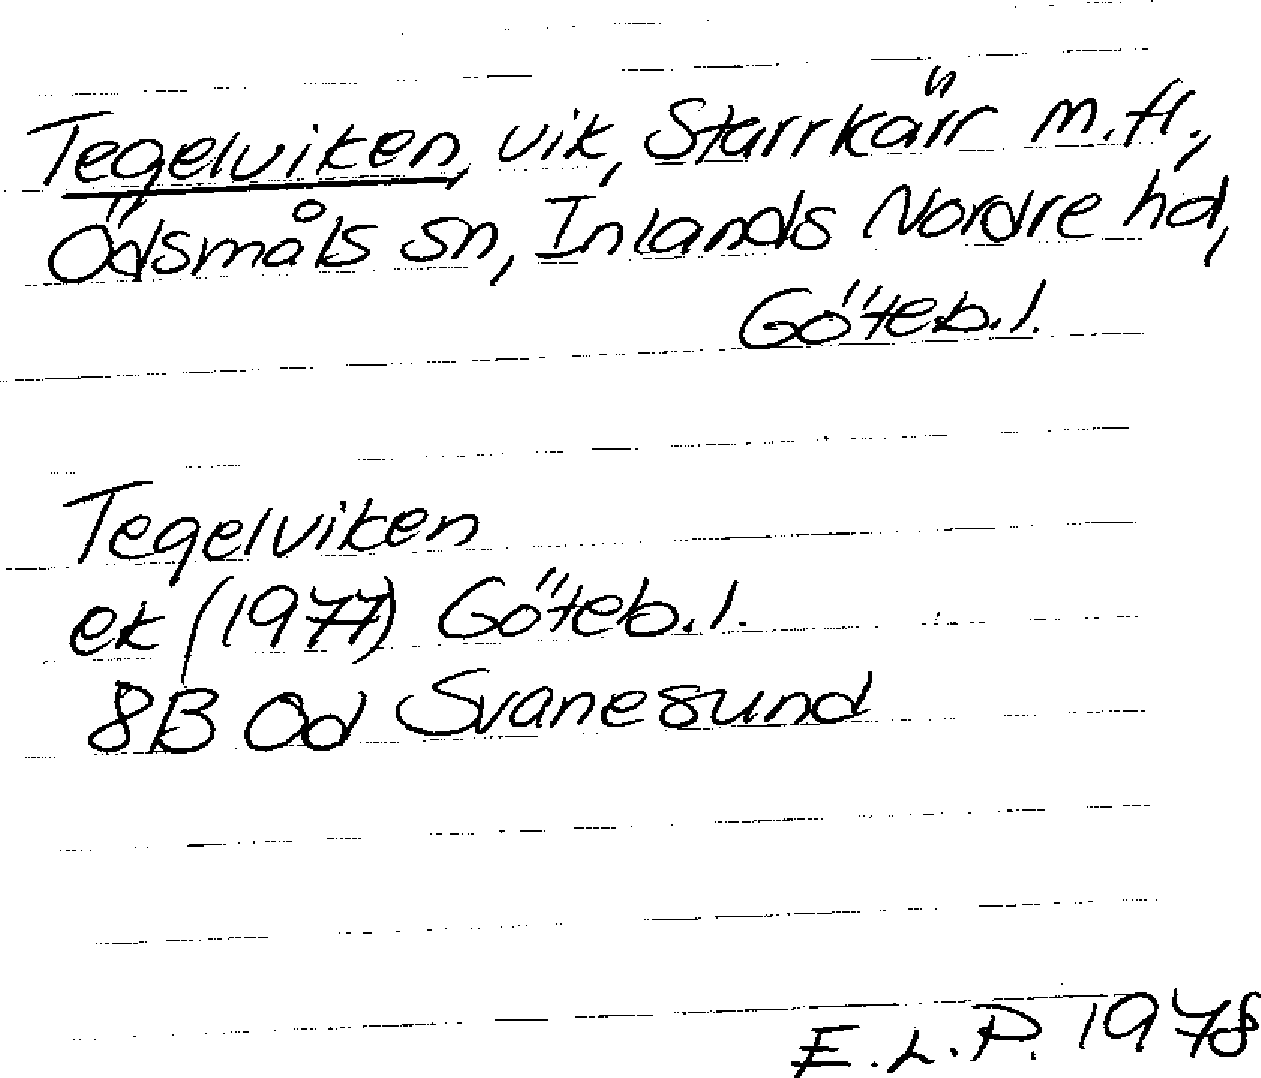 Tegelviken, vik, Starrkärr m.fl.,
Ödsmåls sn, Inlands Nordre hd,
Göteb.l.
Tegelviken
ek (1977) Göteb.l.
8B 0d Svanesund
E.L.P. 1978